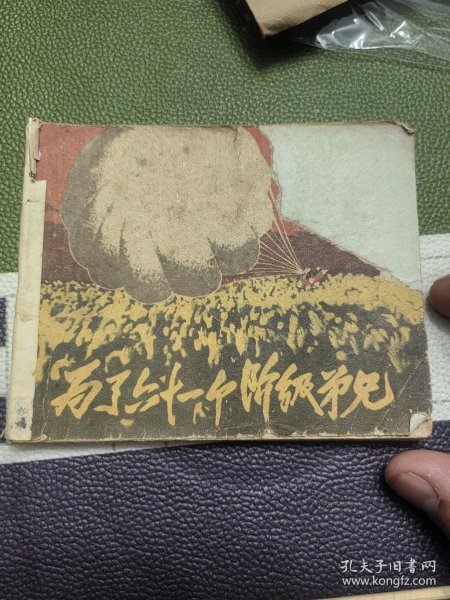 为了六十一个阶级弟兄
孔夫子旧书网
www.kongfz.com